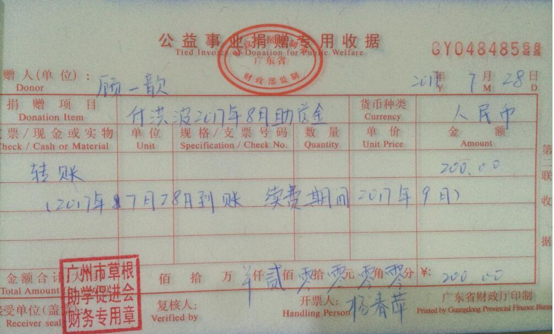 公益事业捐赠专用收据
Tied Invoice of Donation for Public Welfare
广东省
财政部监制
GY048485
赠人(单位):
Donor
顾一歆
2017年 7月 28日
M D
捐赠项目
Donation Item
付洪波2017年8月助学金
货币种类
Currency
人民币
票/现金或实物
Check / Cash or Material
单位
Unit
规格/支票号码
Specification / Check No.
数量
Quantity
单价
Unit Price
金额
Amount
转账
200.00
(2017年7月28日到账 续费期间2017年9月)
第 联 收据
金额合计
Total Amount
佰 拾 万 仟 贰 佰 零 拾 零 元 零 角 零 分 ¥: 200.00
广州市草根
助学促进会
财务专用章
接受单位(盖
Receiver's
复核人:
Verified by
开票人:
Handling Person
杨春萍
广东省财政厅印制
Printed by Guangdong Provincial Finance